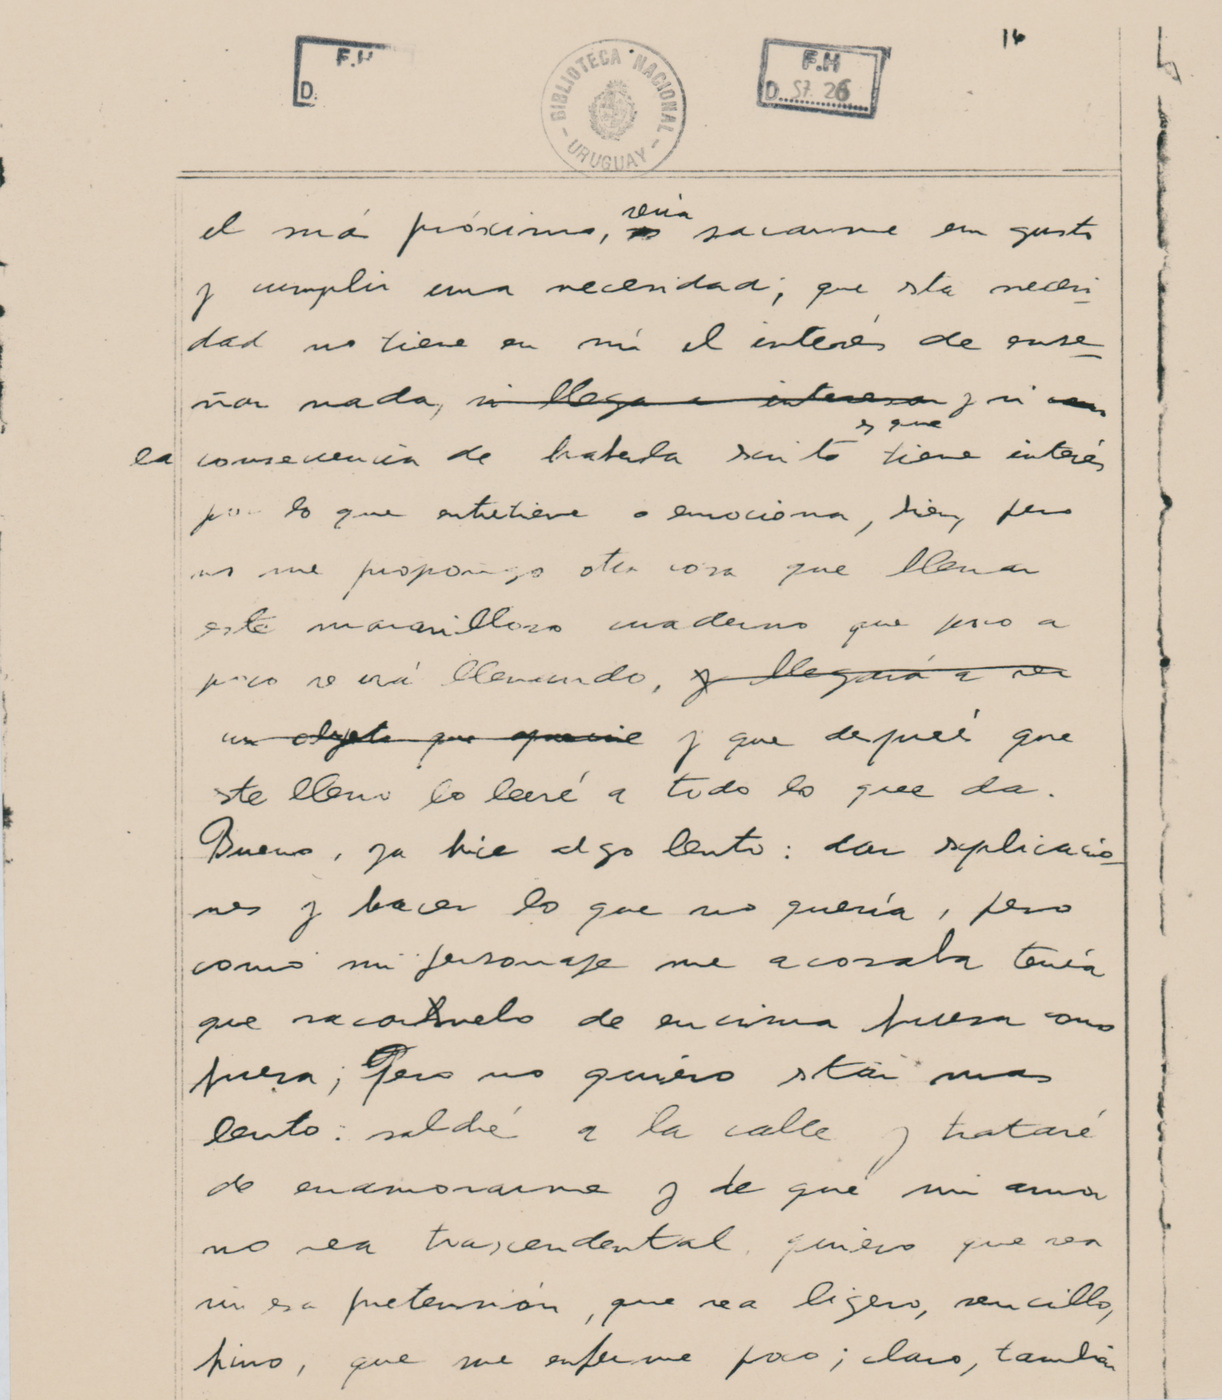 16
F.H
D.
BIBLIOTECA NACIONAL
URUGUAY
F.H
D. 57.26
sería
el má próximo, sacarme em gusto
y cumplir una necesidad; que sta necesi-
dad no tiene en mí el interés de ense-
ñar nada, si llega a interesar y si
s que
la consecuencia de haberla scrito tiene interés
por lo que entretiene o emociona, bien, pero
no me propongo otra cosa que llenar
este maravilloso cuaderno que poco a
poco se irá llenando, y llegará a ser
un objeto que y que después que
ste lleno lo leeré a todo lo que da.
Bueno, ya hice algo lento: dar splicacio-
nes y hacer lo que no quería, pero
como mi personaje me acosaba tenía
que sacármelo de encima fuera como
fuera; Pero no quiero star mas
lento: saldré a la calle y trataré
de enamorarme y de que mi amor
no sea trascendental, quiero que sea
sin esa pretensión, que sea ligero, sencillo,
fino, que me enferme poco; claro, también